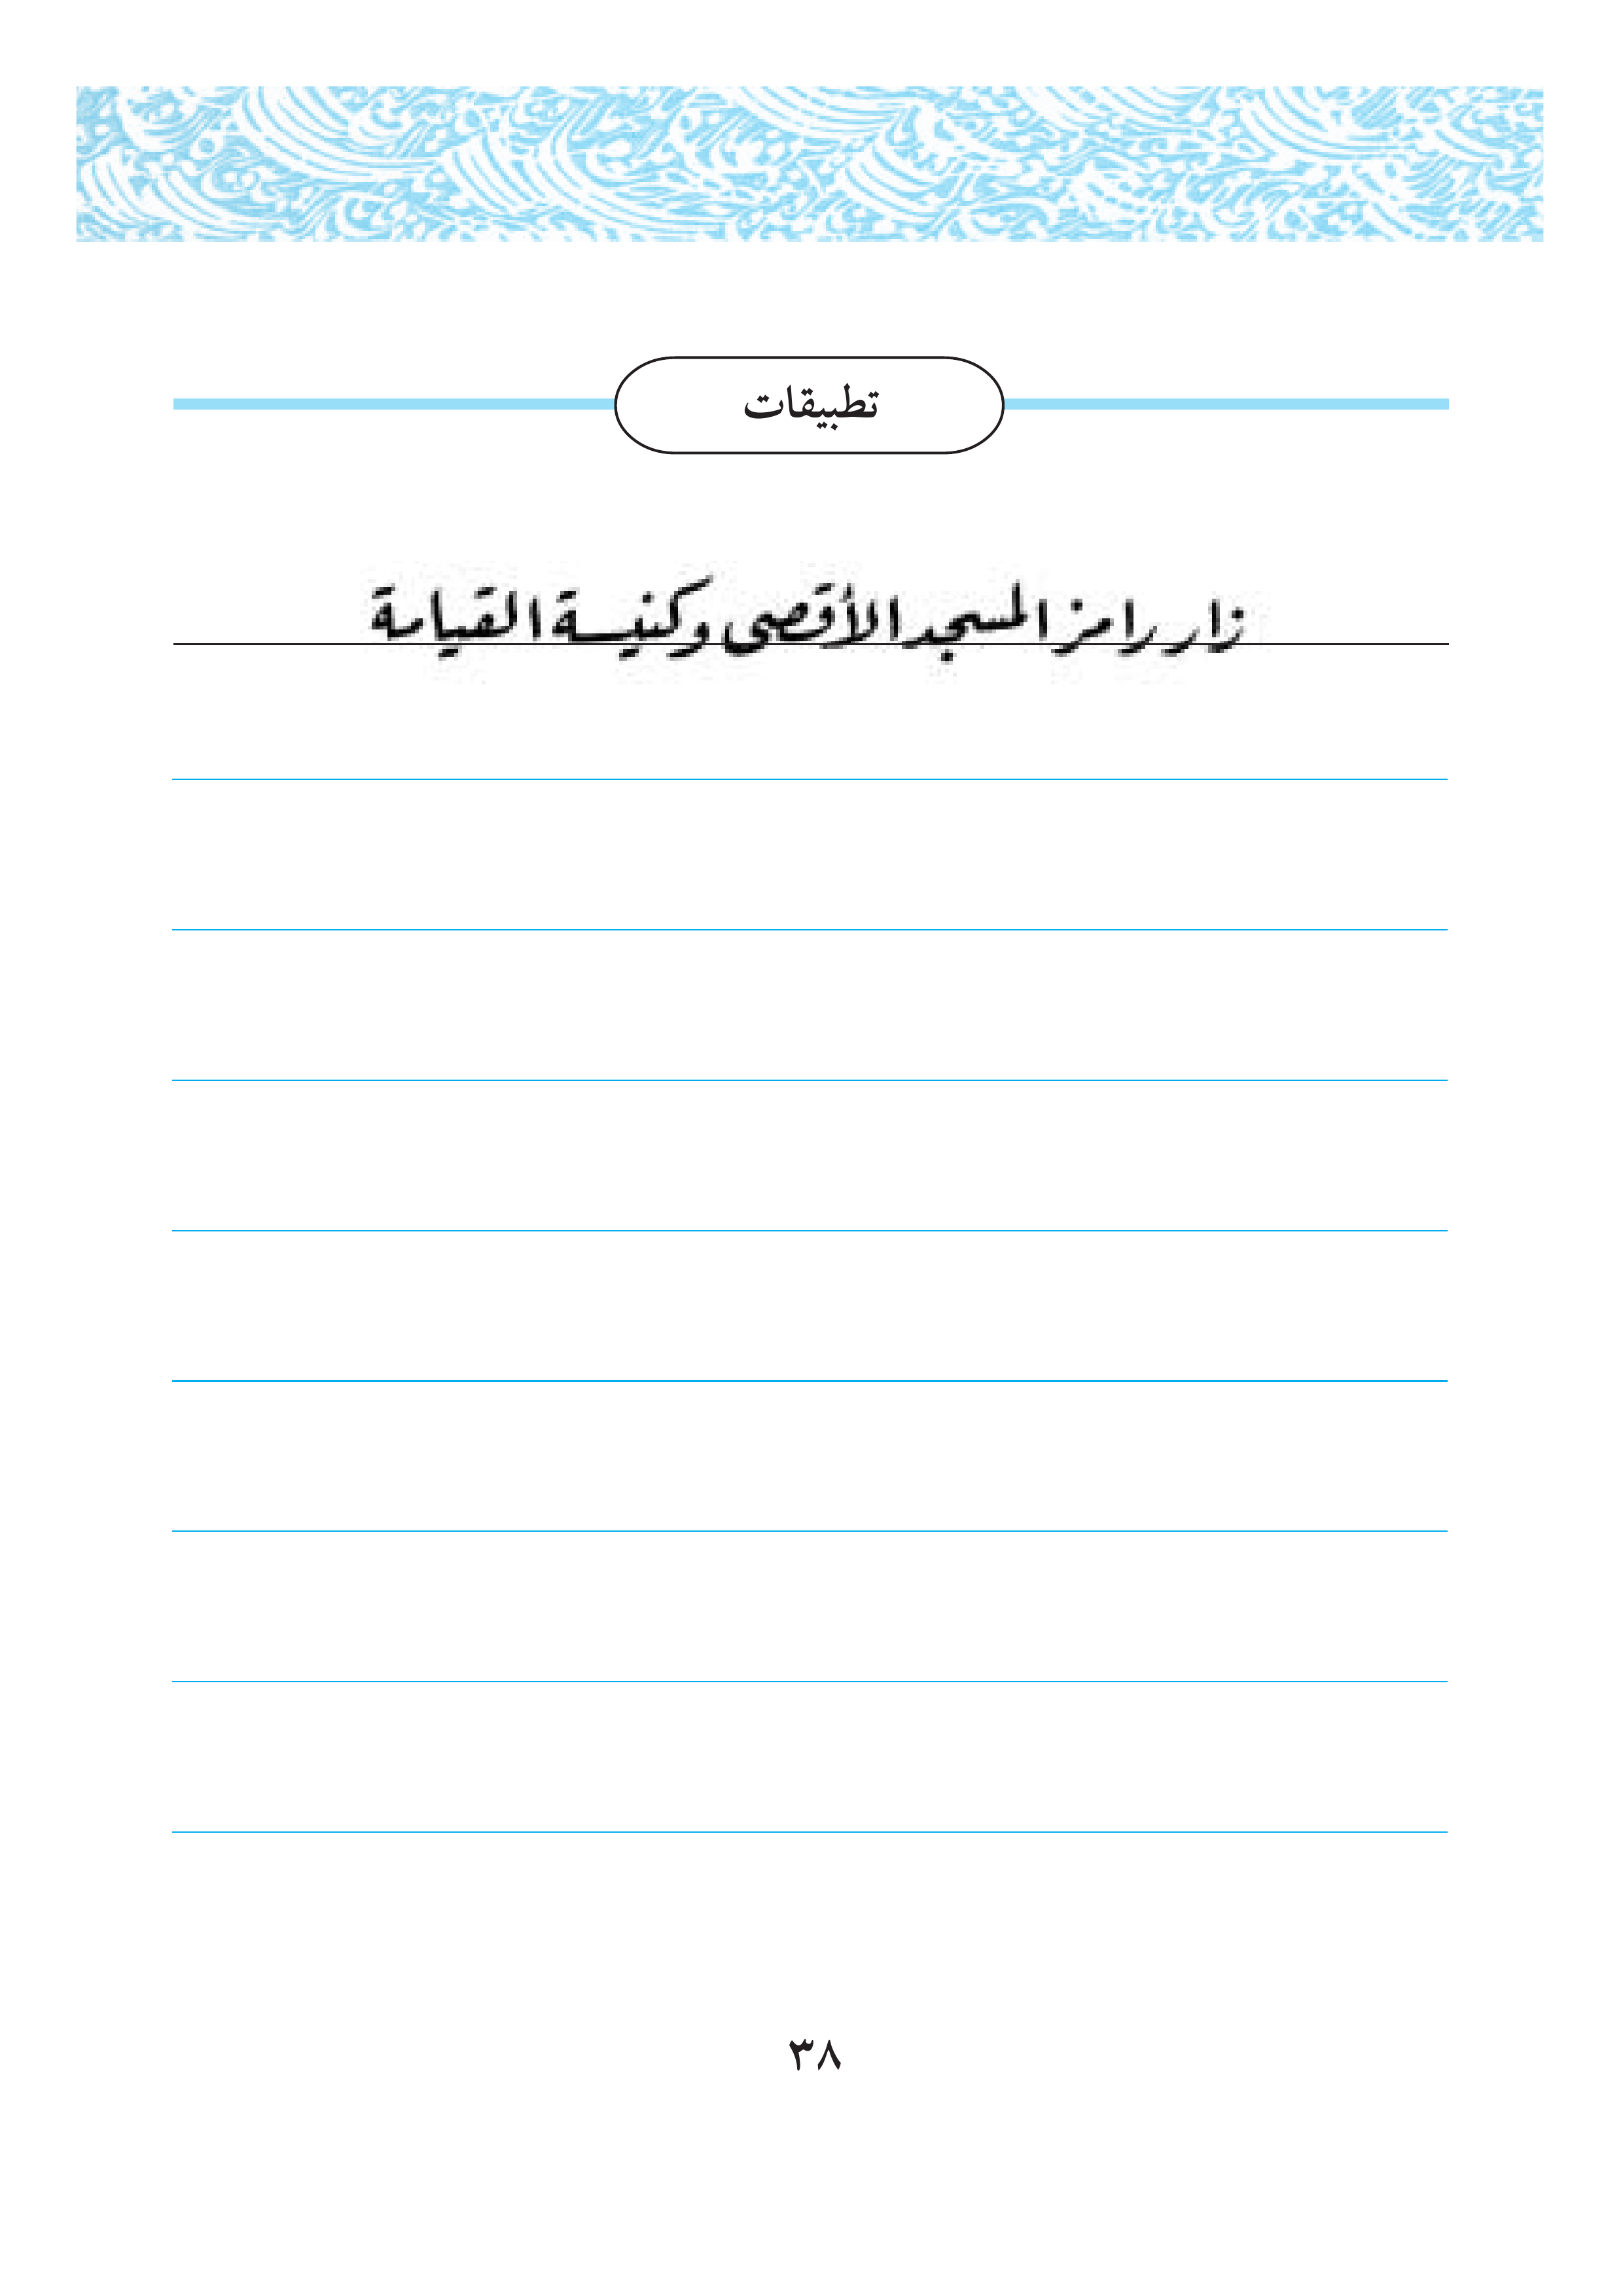 تطبيقات
زار رامز المسجد الأقصى وكنيسة القيامة
٣٨